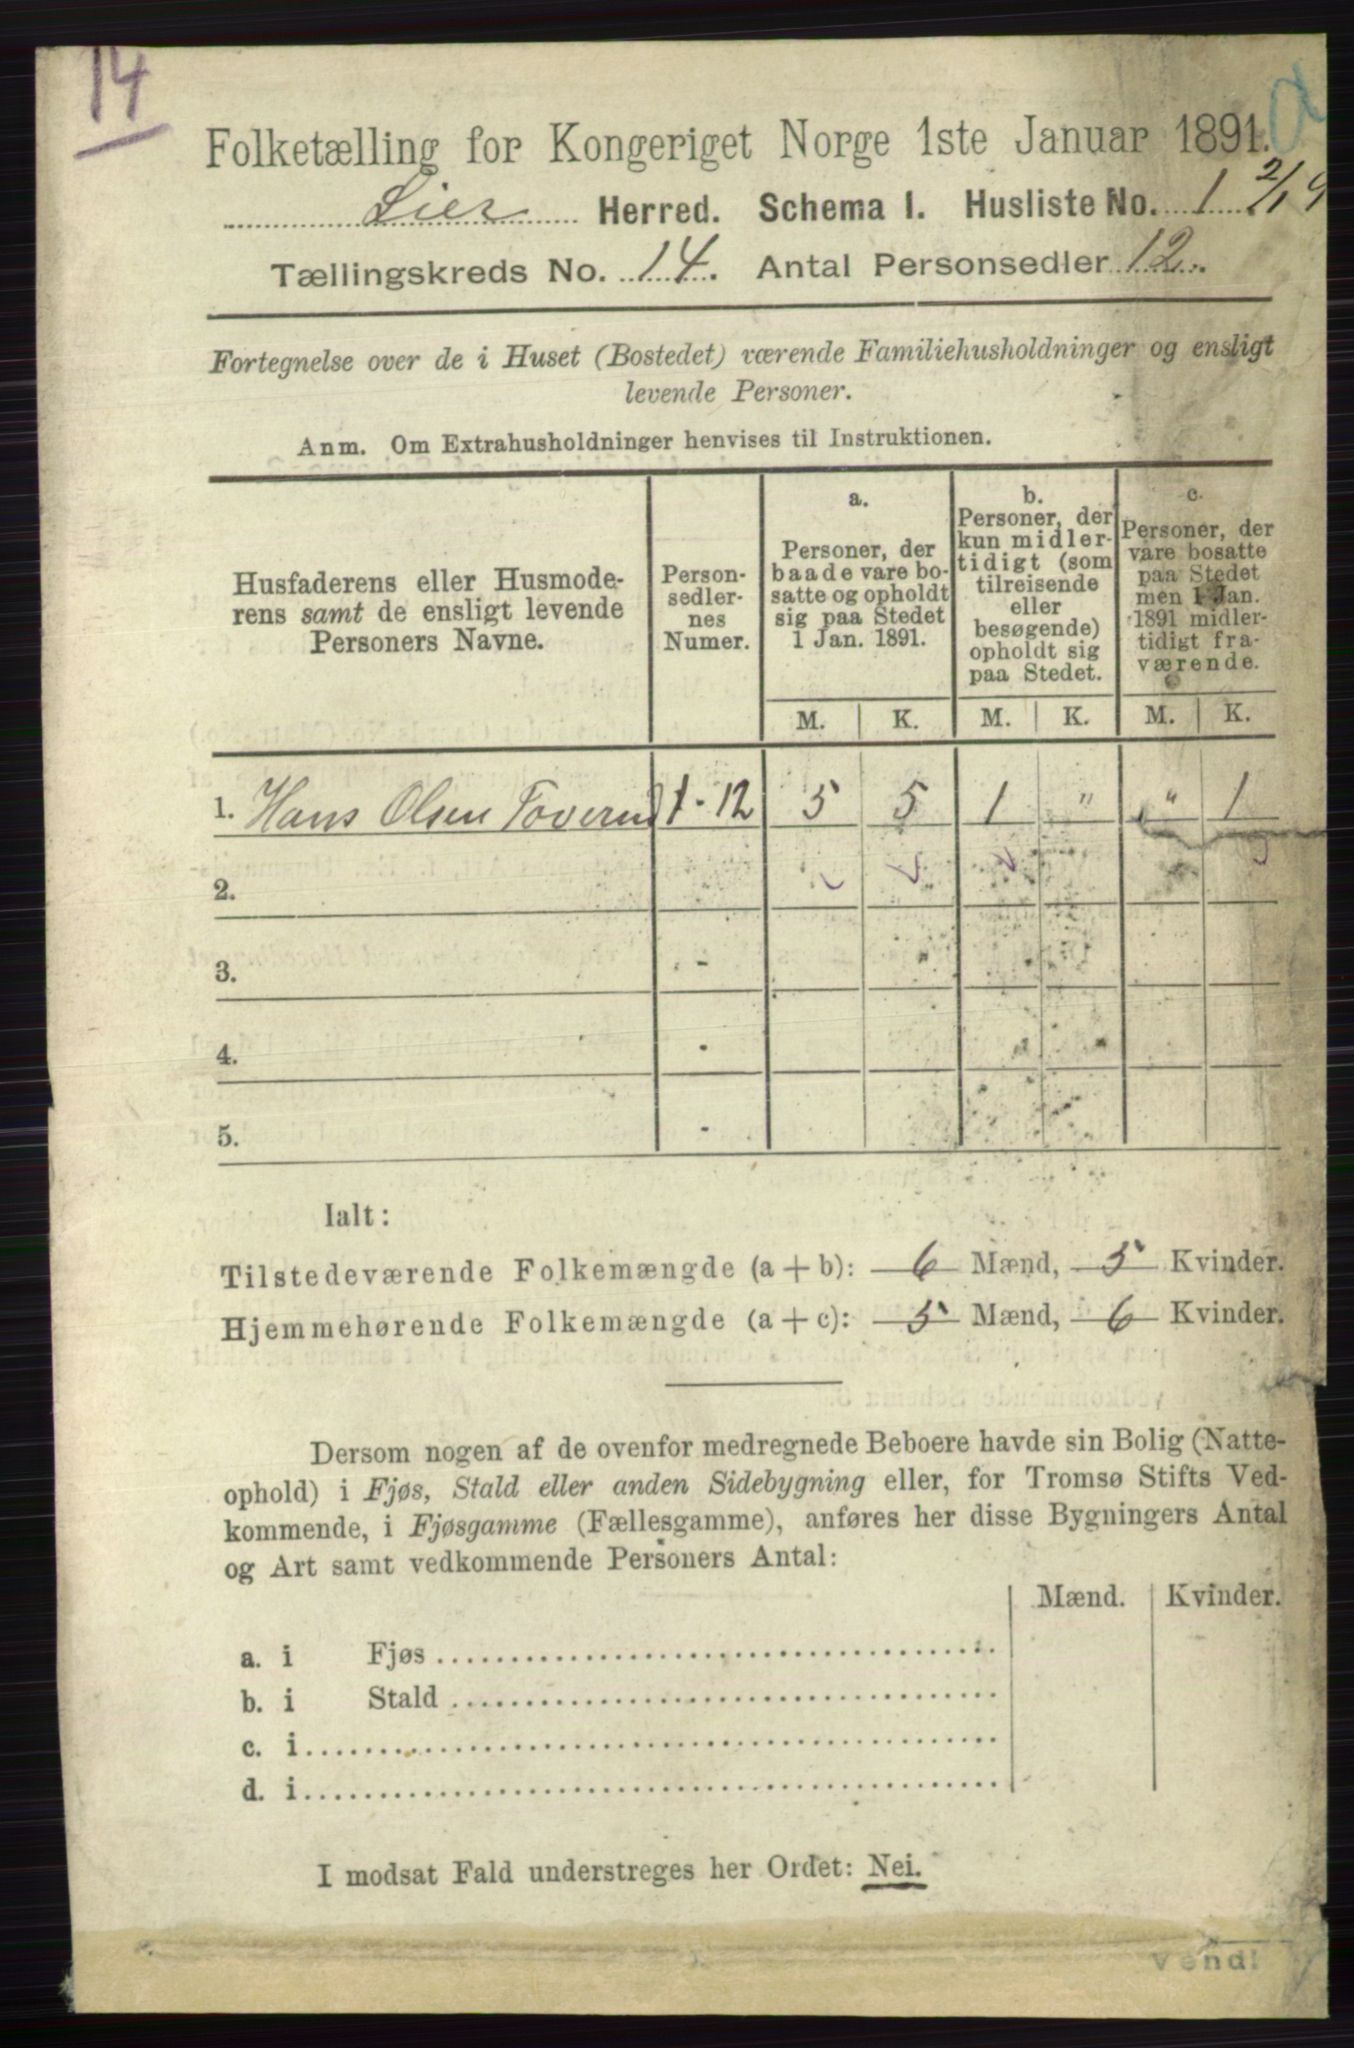 14
Folketælling for Kongeriget Norge 1ste Januar 1891.
Lier Herred. Schema I. Husliste No. 1 2/14
Tællingskreds No. 14. Antal Personsedler 12.
Fortegnelse over de i Huset (Bostedet) værende Familiehusholdninger og ensligt
levende Personer.
Anm. Om Extrahusholdninger henvises til Instruktionen.
Husfaderens eller Husmode-
rens samt de ensligt levende
Personers Navne.
Person-
sedler-
nes
Numer.
a.
Personer, der
baade vare bo-
satte og opholdt
sig paa Stedet
1 Jan. 1891.
b.
Personer, der
kun midler-
tidigt (som
tilreisende
eller
besøgende)
opholdt sig
paa Stedet.
c.
Personer, der
vare bosatte
paa Stedet
men 1 Jan.
1891 midler-
tidigt fra-
værende.
M. K. M. K. M. K.
1. Hans Olsen Toverud 1 - 12 5 5 1 " " 1
2.
3. -
4. -
5. -
Ialt:
Tilstedeværende Folkemængde (a + b): 6 Mænd, 5 Kvinder.
Hjemmehørende Folkemængde (a + c): 5 Mænd, 6 Kvinder.
Dersom nogen af de ovenfor medregnede Beboere havde sin Bolig (Natte-
ophold) i Fjøs, Stald eller anden Sidebygning eller, for Tromsø Stifts Ved-
kommende, i Fjøsgamme (Fællesgamme), anføres her disse Bygningers Antal
og Art samt vedkommende Personers Antal:
Mænd. Kvinder.
a. i Fjøs
b. i Stald
c. i
d. i
I modsat Fald understreges her Ordet: Nei.
Vend!